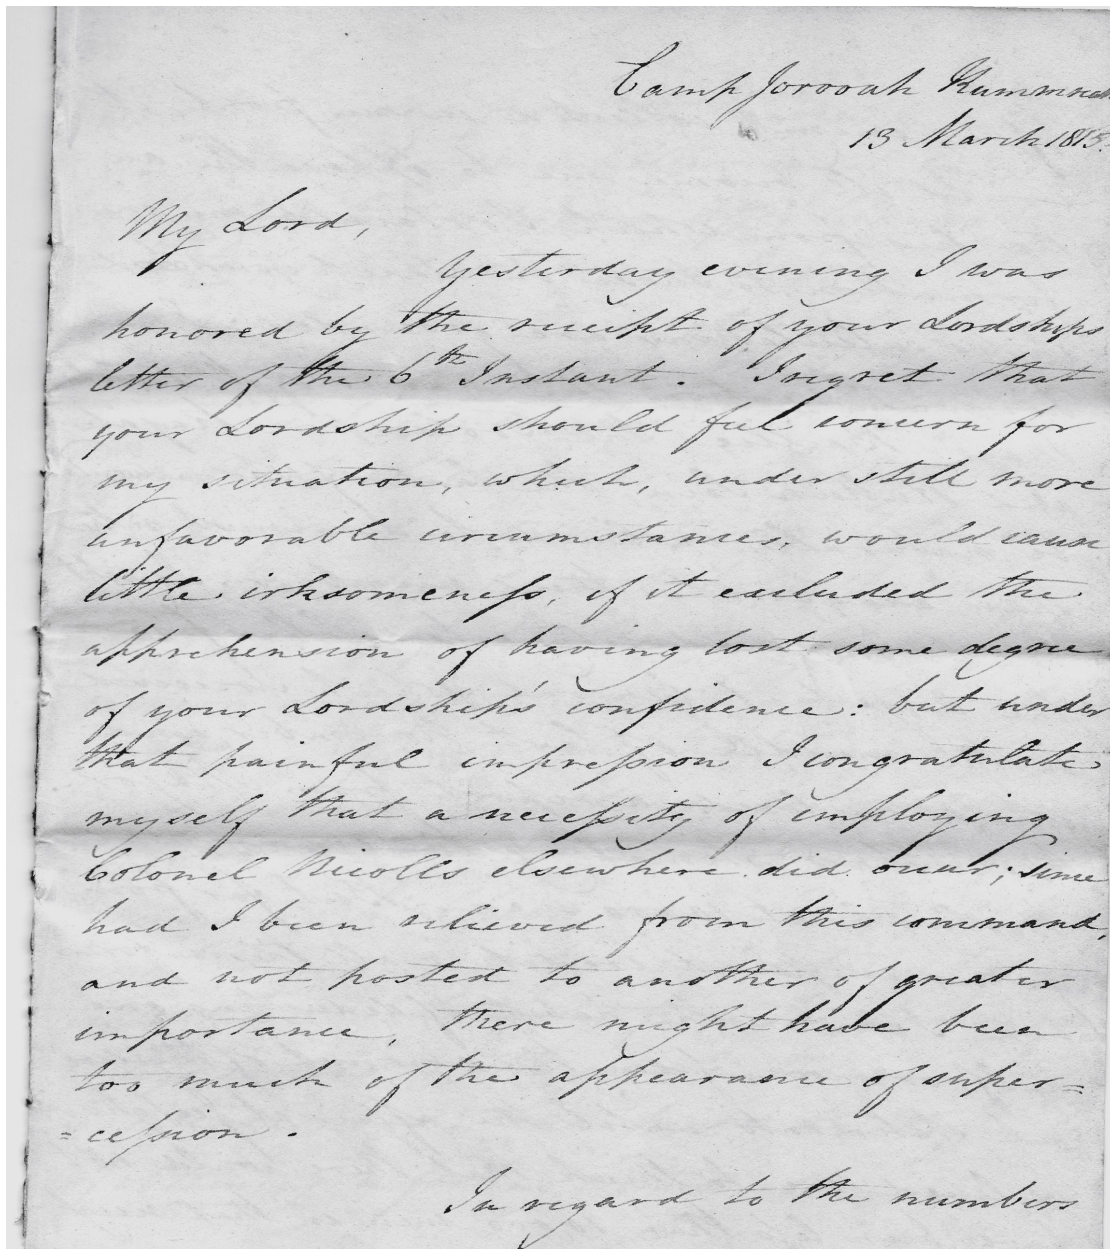 Camp Jorooah
13 March 1815.
My Lord,
Yesterday evening I was
honored by the receipt of your Lordships
letter of the 6th Instant. I regret that
your Lordship should feel concern for
my situation, which, under still more
unfavorable circumstances, would cause
little irksomeness, if it excluded the
apprehension of having lost some degree
of your Lordship's confidence: but under
that painful impression I congratulate
myself that a necessity of employing
Colonel Nicolls elsewhere did occur; since
had I been relieved from this command,
and not posted to another of greater
importance, there might have been
too much of the appearance of super=
=cession.
In regard to the numbers